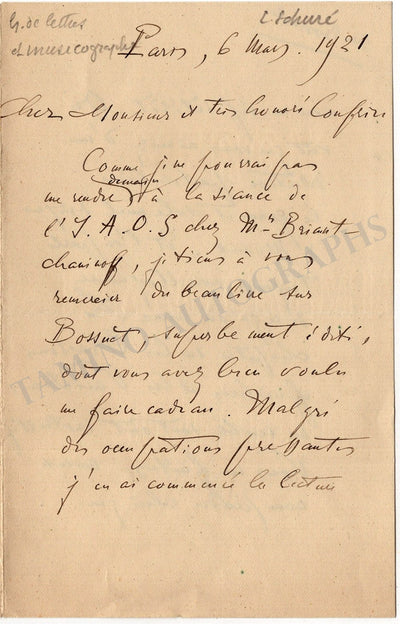 h. de lettres
et musicographe
E Schuré
Paris, 6 Mars. 1921
Cher Monsieur et très honoré Confrère.
Comme je ne pourrai pas
me rendre demain à la séance de
l'I.A.O.S chez Mr Briant-
chaninoff, je tiens à vous
remercier du beau livre sur
Bossuet superbement édité,
dont vous avez bien voulu
me faire cadeau. Malgré
des occupations pressantes
j'en ai commencé la lecture
TAMINO AUTOGRAPHS